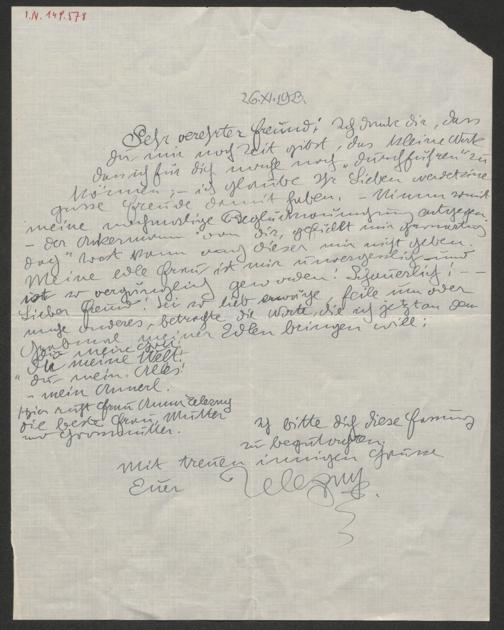 I.N. 149.578
26.XI.193.
Sehr verehrter Freund! Ich danke dir, dass
du mir noch Zeit gibst, das kleine Werk
das ich für dich mache noch „durchführen" zu
können, – ich glaube Ihr Lieben werdet eine
grosse Freude damit haben. – Nimm somit
meine nochmalige Beglückwünschung entgegen.
– der Ackermann von dir, gefällt mir
doch kann auch dieser mir nicht geben.
Meine edle Frau ist mir unvergesslich und
ist so vergänglich geworden! Schauerlich! – –
Lieber Freund! Sei so lieb erwäge, feile um oder
anderes, betrachte die Worte, die ich jetzt an dem
Grabmal meiner Edlen bringen will:
Du meine
Du meine Welt,
„du – mein Alles!
– mein Annerl.
Hier ruht Frau Anna Zelezny
die beste Frau, Mutter
und Grossmutter.
Ich bitte dich diese Fassung
zu begutachten
Mit treuen innigen Grüsse
Euer Zelezny.